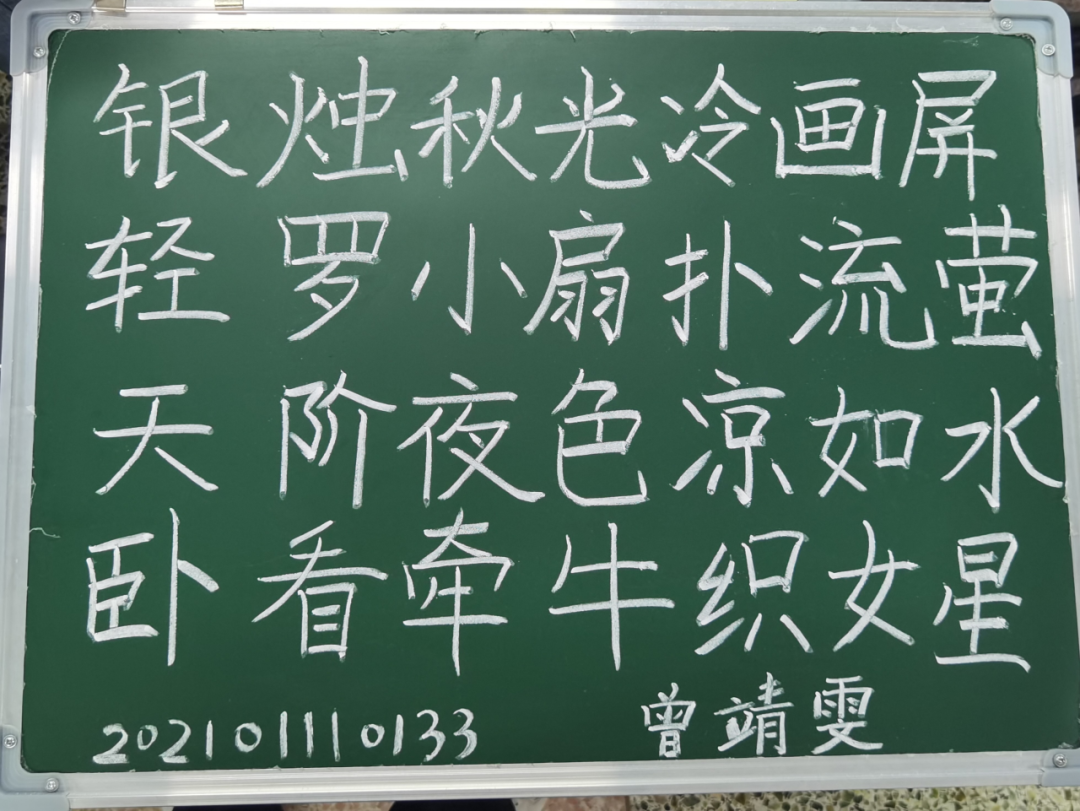 银烛秋光冷画屏
轻罗小扇扑流萤
天阶夜色凉如水
卧看牵牛织女星
202101110133 曾靖雯